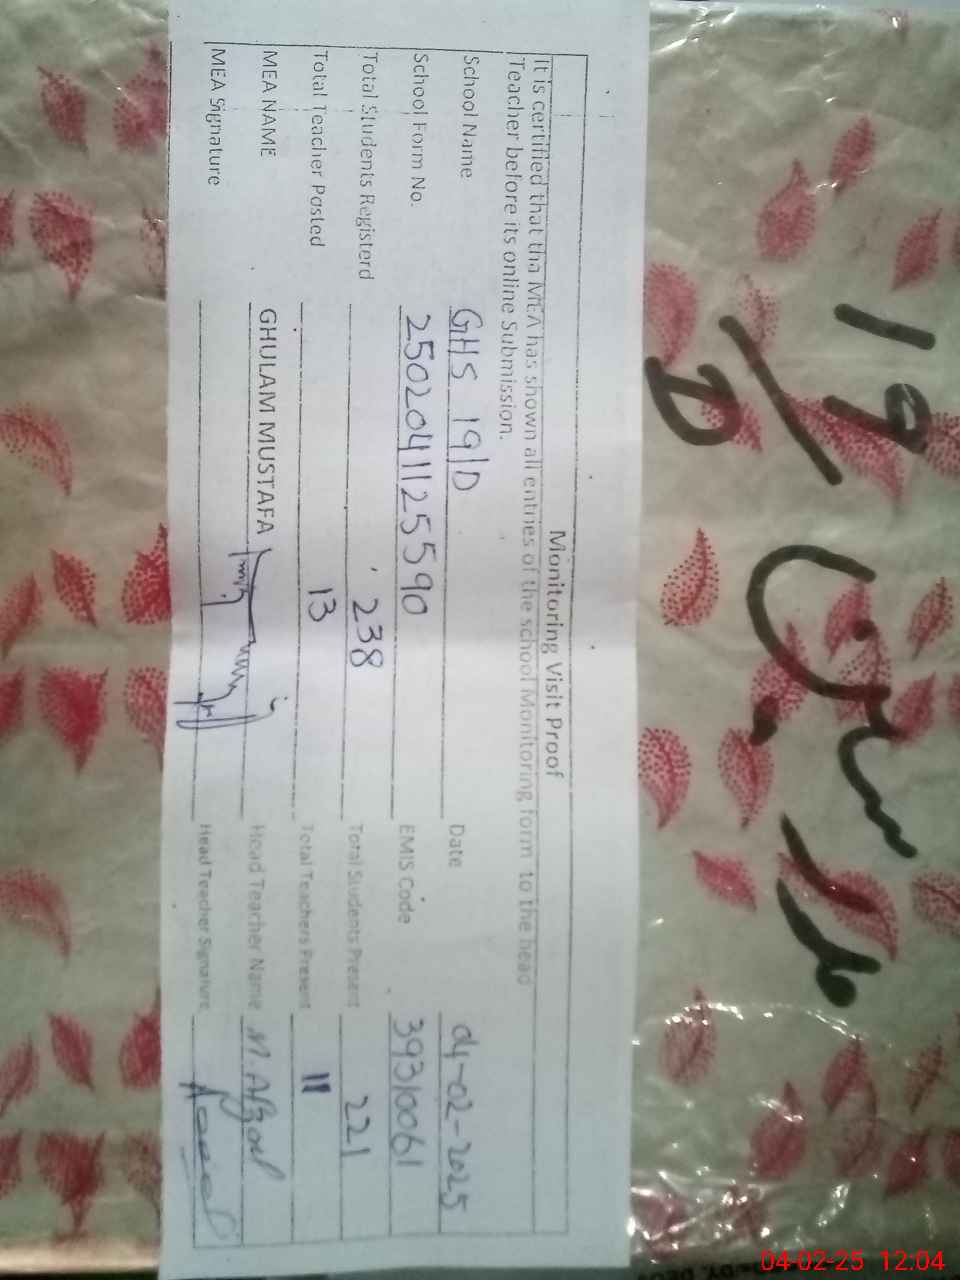 Monitoring Visit Proof
It is certified that tha MEA has shown all entries of the school Monitoring form to the head
Teacher before its online Submission.
School Name GHS 19/D Date 04-02-2025
School Form No. 2502041125590 EMIS Code 39310061
Total Students Registerd 238 Total Students Present 221
Total Teacher Posted 13 Total Teachers Present 11
MEA NAME GHULAM MUSTAFA Head Teacher Name M. Afzal
MEA Signature Head Teacher Signature
19/D
04-02-25 12:04